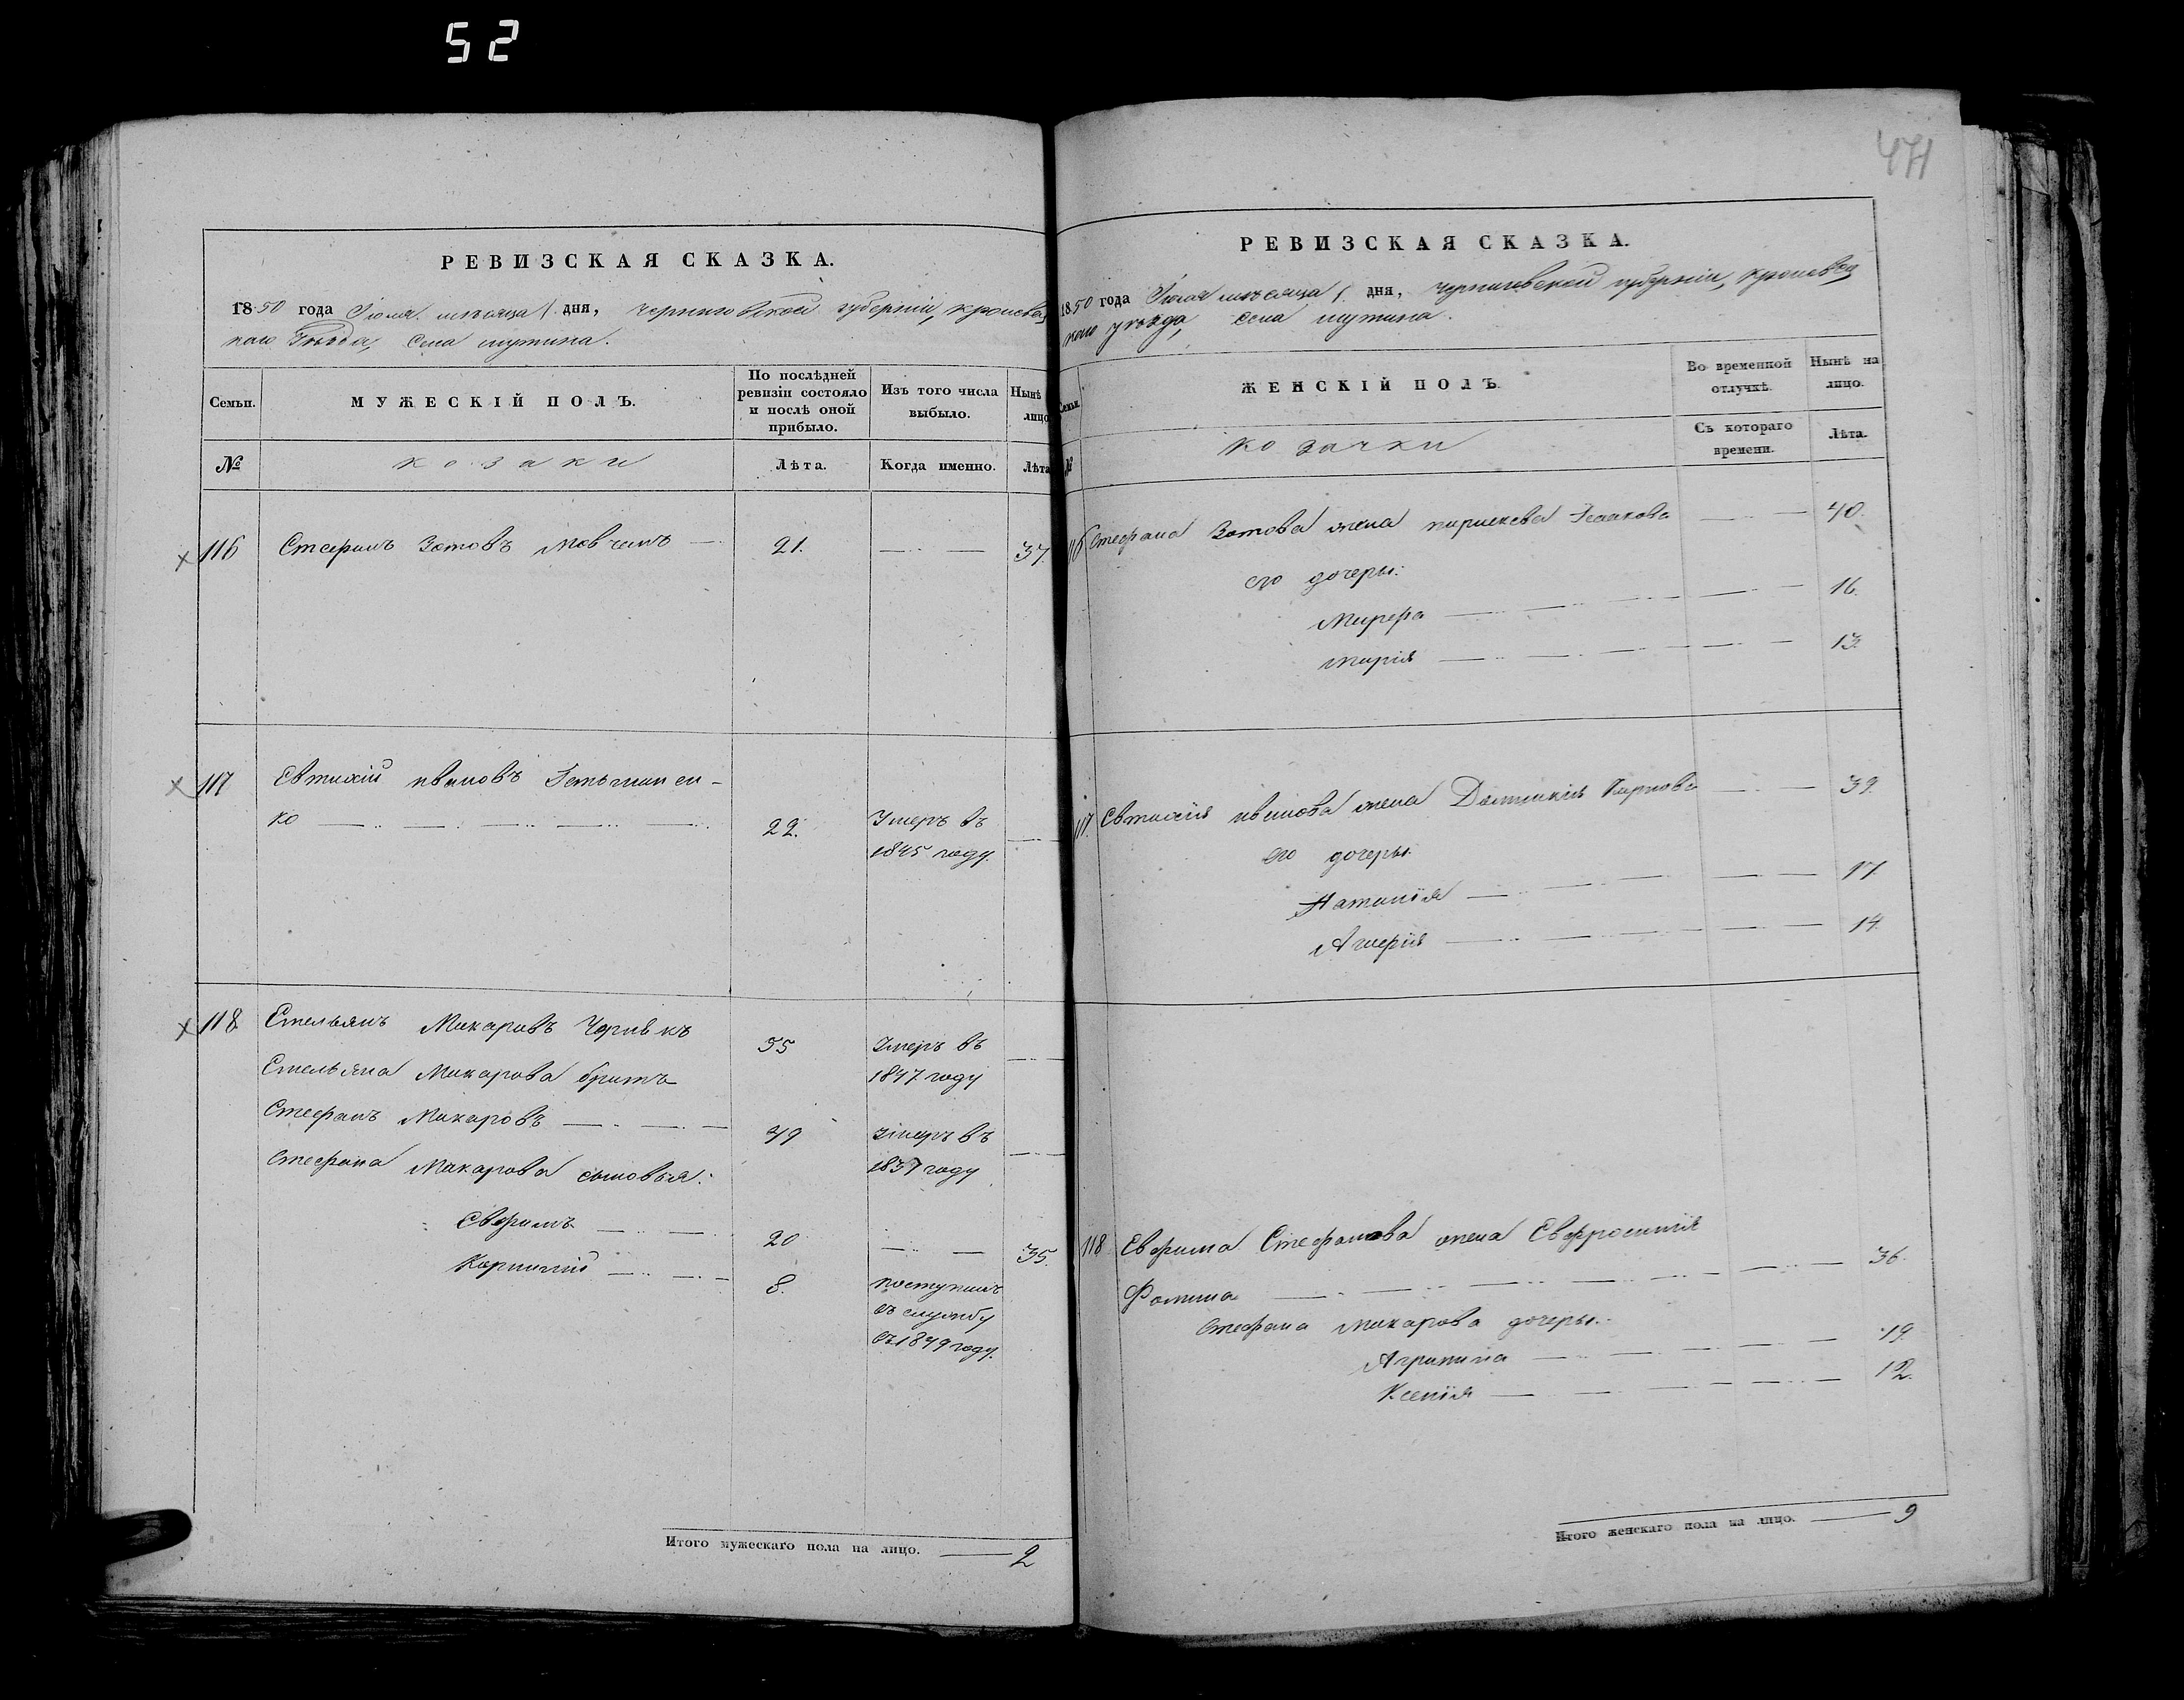 52
471
РЕВИЗСКАЯ СКАЗКА.
1850 года Іюля мѣсяца 1 дня, Черниговской губерніи, кролевец
каго уѣзда, села мутина.
Семьи.
МУЖЕСКІЙ ПОЛЪ.
По послѣдней
ревизіи состояло
и послѣ оной
прибыло.
Изъ того числа
выбыло.
Нынѣ
лицо
№
козаки
Лѣта.
Когда именно.
Лѣта
116 Стефанъ Зотовъ Мовчанъ — 21. — 37.
117 Евтихій ивановъ Гетьманен-
ко — 22. Умеръ въ
1845 году.
118 Емельянъ Макаровъ 55 Умеръ въ
Емельяна Макарова братъ 1847 году
Стефанъ Макаровъ — 49 Умеръ въ
Стефана Макарова сыновья: 1837 году
Евфимъ — 20 — 35.
Корнилій — 8. поступилъ
въ службу
въ 1849 году.
Итого мужескаго пола на лицо. — 2
РЕВИЗСКАЯ СКАЗКА.
1850 года Іюля мѣсяца 1. дня, черниговской губерніи, кролевец
каго уѣзда, села мутина.
Семьи.
ЖЕНСКІЙ ПОЛЪ.
Во временной
отлучкѣ.
Нынѣ на
лицо.
№
козачки
Съ котораго
времени.
Лѣта.
116 Стефана Зотова жена — 40.
его дочеры:
Марфа — 16.
Марія — 13.
117. Евтихія иванова жена Домникія Карпова — 39.
его дочеры.
— 17.
— 14.
118 Евфима Стефанова жена Евфросинія
Фомина — 36.
Стефана макарова дочеры:
Агрипина — 19.
Ксенія — 12.
Итого женскаго пола на лицо. — 9